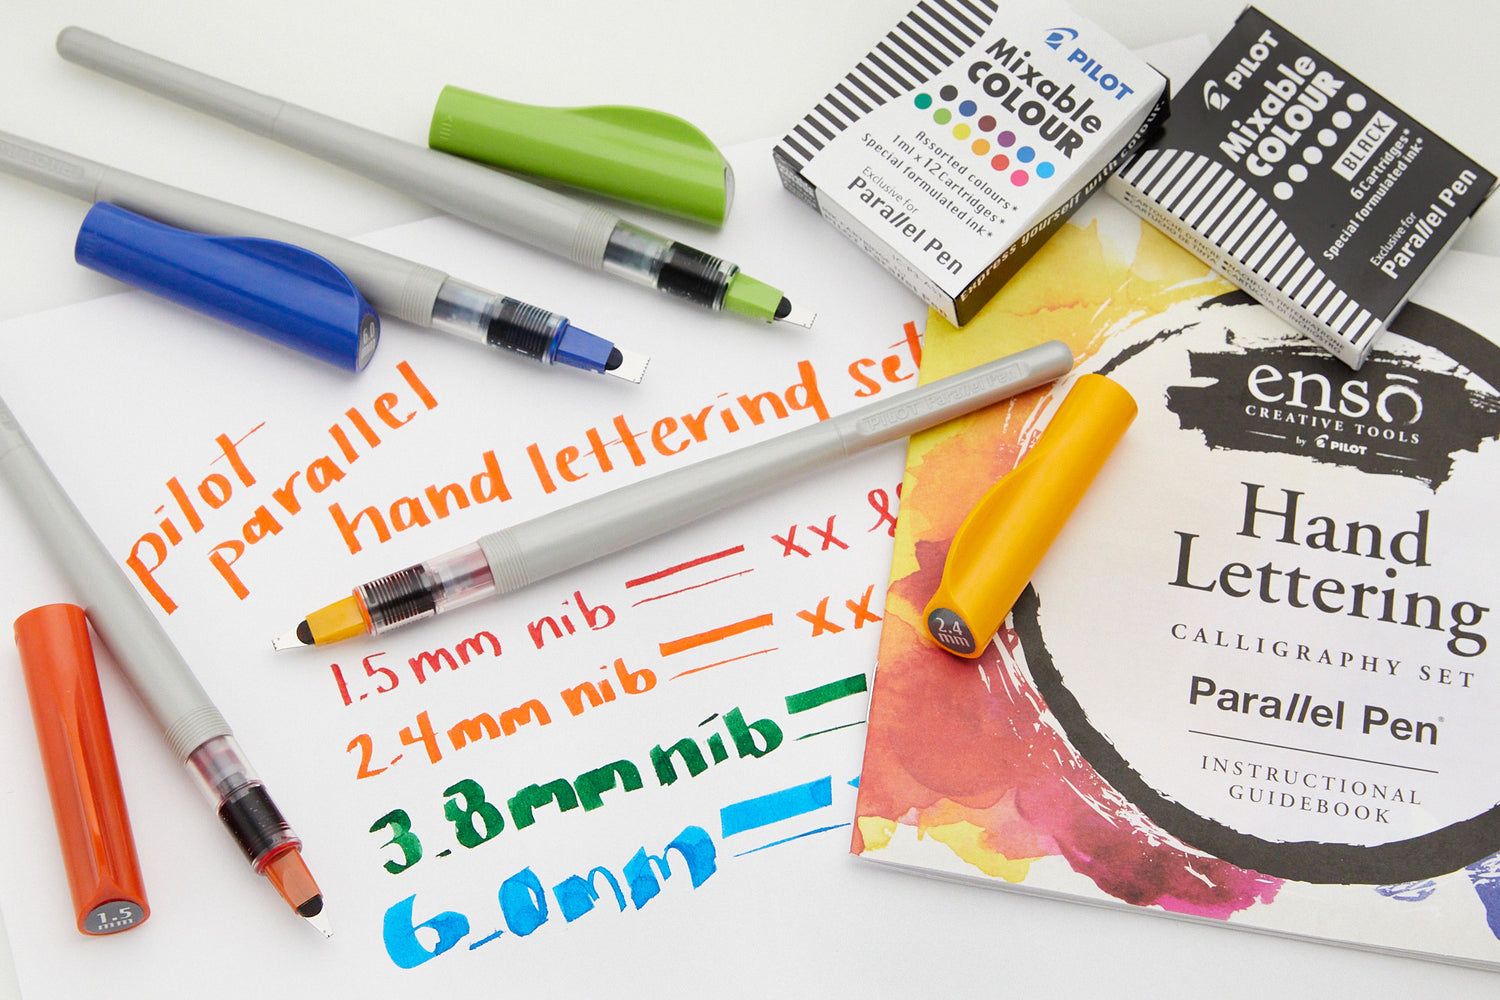 PILOT
Mixable
COLOUR
Assorted colours*
1ml x 12 Cartridges*
Special formulated Ink*
Exclusive for
Parallel Pen
Express yourself with colour
PILOT
Mixable
COLOUR
BLACK
6 Cartridges*
Special formulated Ink*
Exclusive for
Parallel Pen
6.0
pilot
parallel
hand lettering set
PILOT Parallel Pen
1.5mm nib xx
2.4mm nib xx
3.8mm nib
6.0mm
2.4
mm
1.5
mm
ensō
CREATIVE TOOLS
by PILOT
Hand
Lettering
CALLIGRAPHY SET
Parallel Pen
INSTRUCTIONAL
GUIDEBOOK